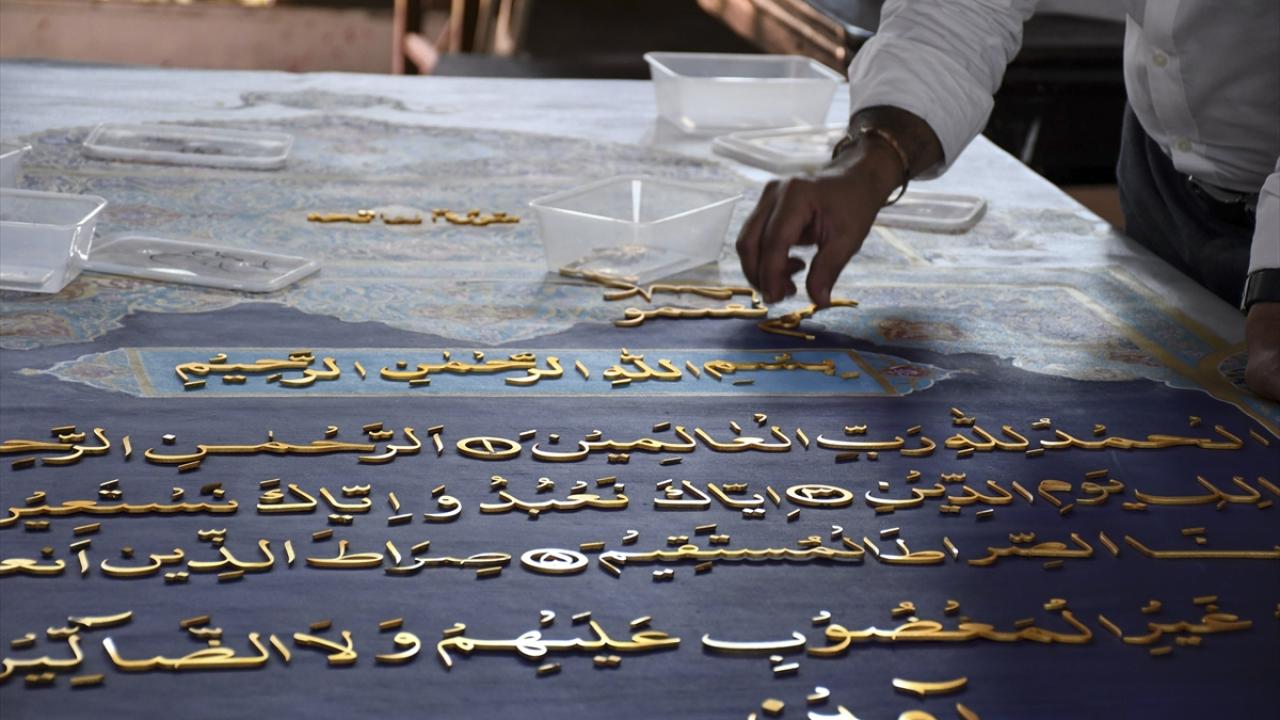 بِسْمِ اللهِ الرَّحْمٰنِ الرَّحِيْمِ
لْحَمْدُ لِلّٰهِ رَبِّ الْعَالَمِيْنَ ١ اَلرَّحْمٰنِ الرَّحِ
الِكِ يَوْمِ الدِّيْنِ ٣ اِيَّاكَ نَعْبُدُ وَ اِيَّاكَ نَسْتَعِيْ
نَا الصِّرَاطَ الْمُسْتَقِيْمَ ٥ صِرَاطَ الَّذِيْنَ اَنْعَ
غَيْرِ الْمَغْضُوْبِ عَلَيْهِمْ وَ لَا الضَّالِّيْنَ